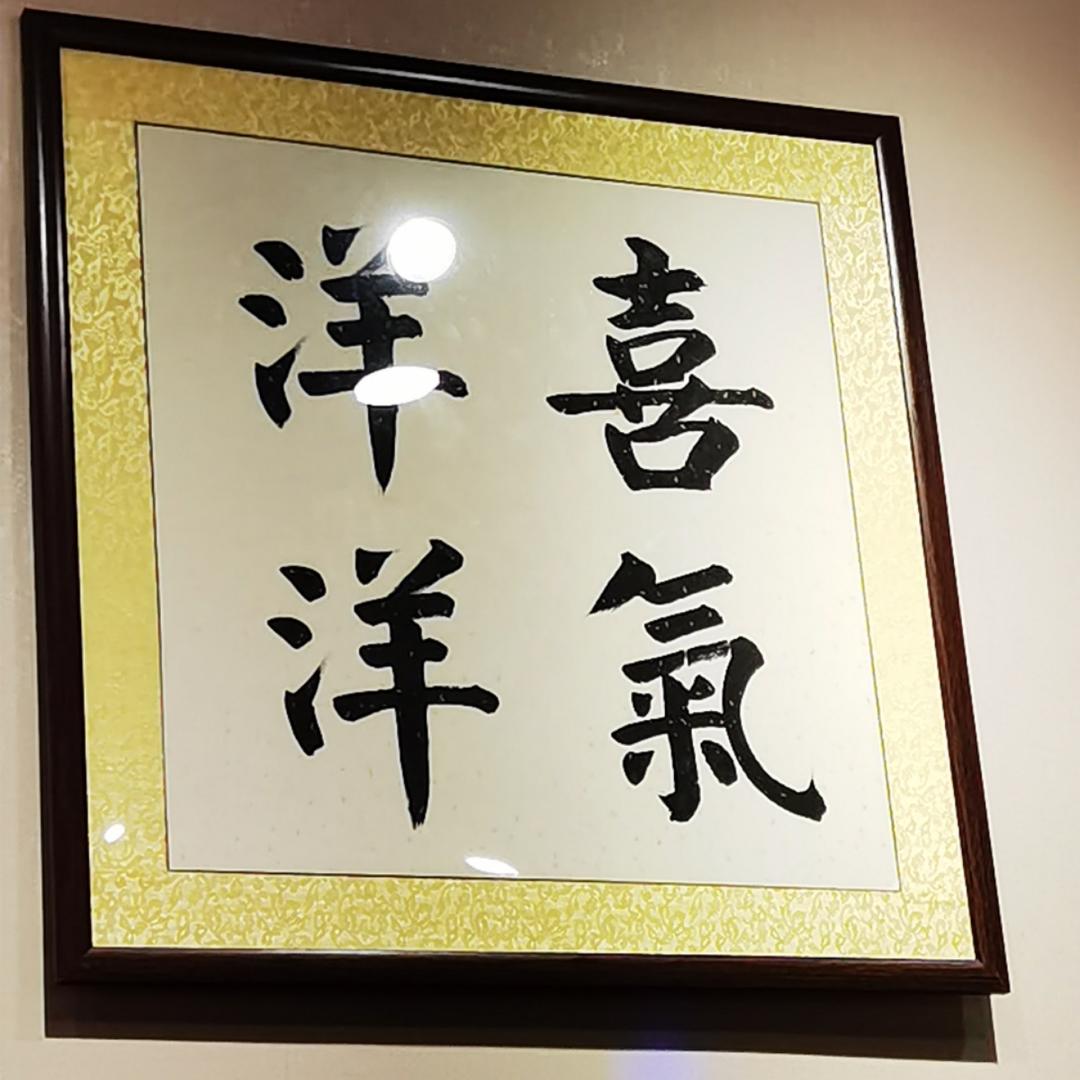 喜氣
洋洋